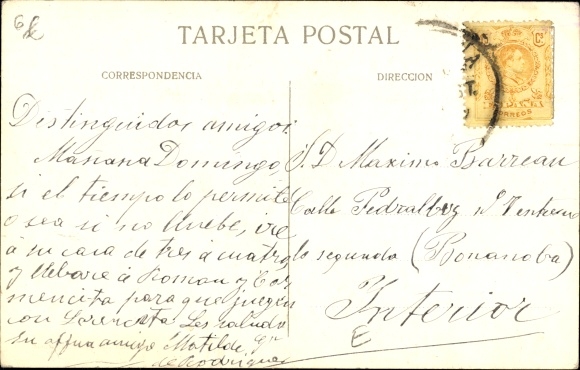 TARJETA POSTAL
CORRESPONDENCIA
DIRECCION
Distinguidos amigos:
Mañana Domingo,
si el tiempo lo permite
o sea si no lluebe, iré
á su casa de tres á cuatro
y llebaré á Roman y Car
mencita para que jueguen
con Lorencita Les saluda
su affma amiga Matilde
de Rodriguez
S. D Maximo Barreau
Calle Pedralbez
lo segundo (Bonanoba)
Interior
CORREOS